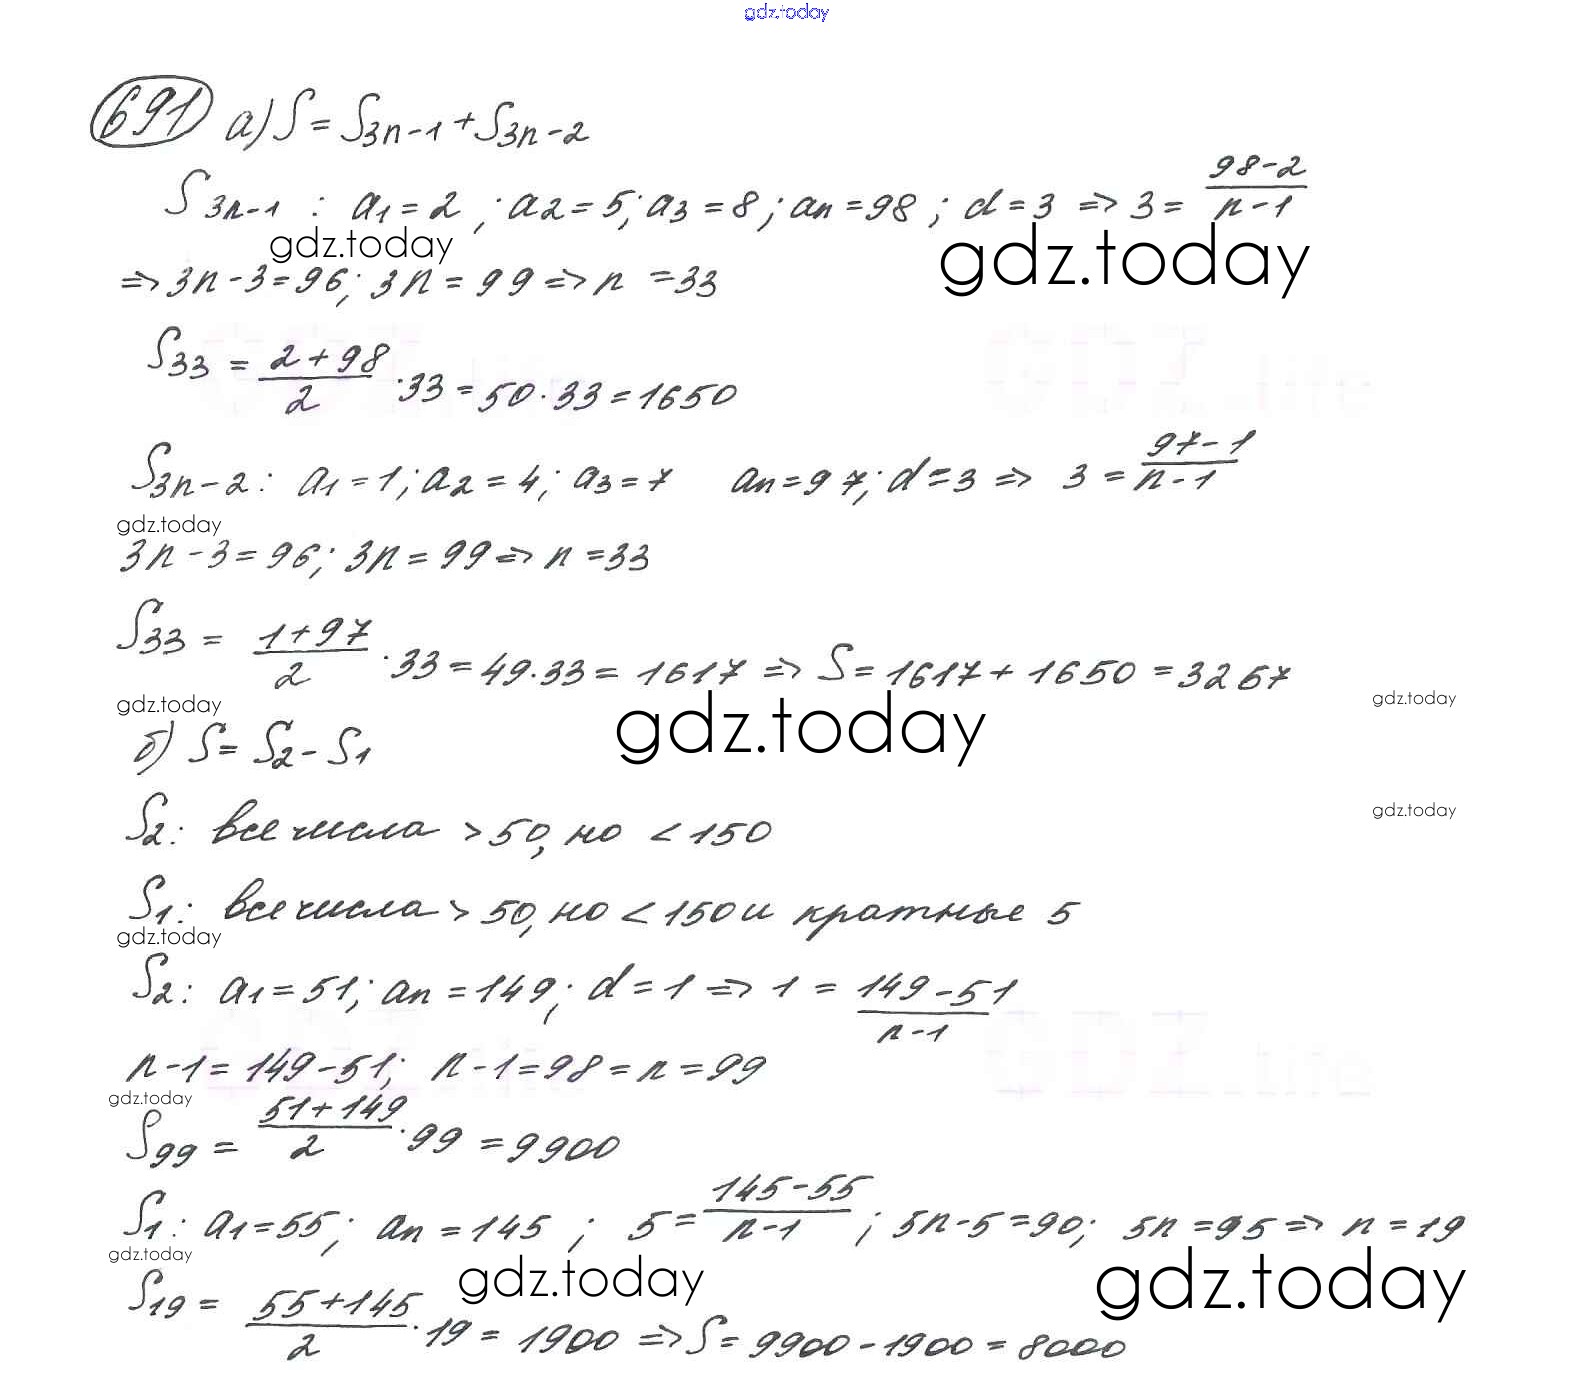 gdz.today
691 а) S = S3n-1 + S3n-2
S3n-1 : a1 = 2 ; a2 = 5; a3 = 8; an = 98 ; d = 3 => 3 = (98-2)/(n-1)
gdz.today gdz.today
=> 3n - 3 = 96; 3n = 99 => n = 33
S33 = (2+98)/2 · 33 = 50 · 33 = 1650
S3n-2 : a1 = 1; a2 = 4; a3 = 7 an = 97; d = 3 => 3 = (97-1)/(n-1)
gdz.today
3n - 3 = 96; 3n = 99 => n = 33
S33 = (1+97)/2 · 33 = 49 · 33 = 1617 => S = 1617 + 1650 = 3267
gdz.today gdz.today gdz.today
б) S = S2 - S1
S2: все числа > 50, но < 150
gdz.today
S1: все числа > 50, но < 150 и кратные 5
gdz.today
S2: a1 = 51; an = 149; d = 1 => 1 = (149-51)/(n-1)
n - 1 = 149 - 51; n - 1 = 98 = n = 99
gdz.today
S99 = (51+149)/2 · 99 = 9900
S1: a1 = 55; an = 145 ; 5 = (145-55)/(n-1) ; 5n - 5 = 90; 5n = 95 => n = 19
gdz.today gdz.today gdz.today
S19 = (55+145)/2 · 19 = 1900 => S = 9900 - 1900 = 8000